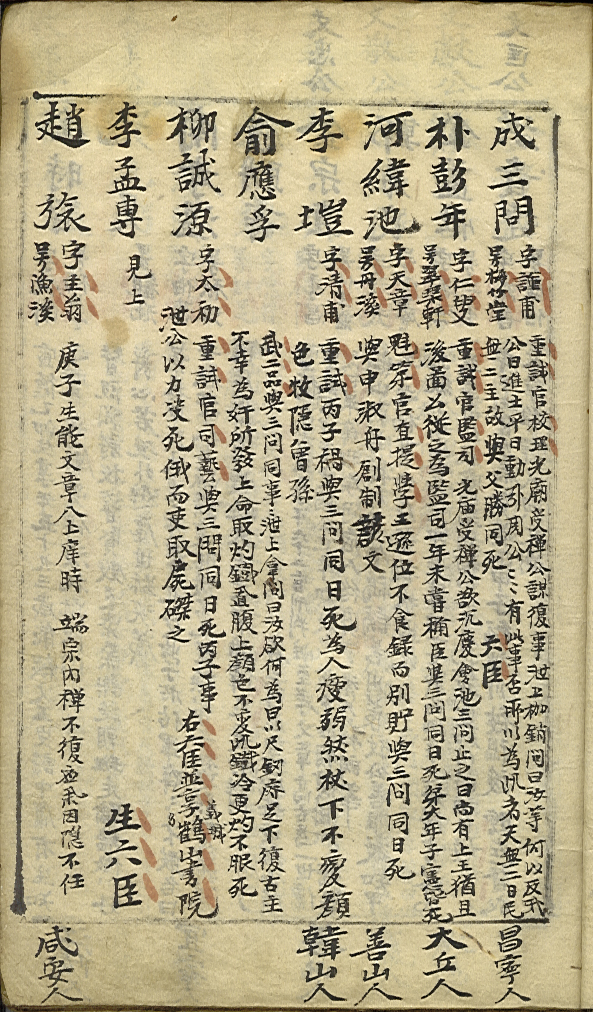 成三問 字謹甫 重試官校理光廟受禪公謀復事泄上拁銷問曰汝等何以反我 昌寧人
號梅竹堂 公曰進士平日動引周公公公有此事否所以爲此者天無二日民
無二王故與父勝同死 六臣
朴彭年 字仁叟 重試官監司 光庙受禪公欲沉慶會池三問止之曰尚有上王猶且 大丘人
號翠琹軒 後啚公從之爲監司一年未嘗稱臣與三問同日死弟大年子憲皆死
河緯池 字天章 魁第官直提學 王遜位不食錄而別貯與三問同日死 善山人
號丹溪 與申淑舟創制諺文
李塏 字清甫 重試丙子禍與三問同日死爲人瘦弱然杖下不変顔 韓山人
色牧隱曾孫
俞應孚 武二品與三問同事泄上拿問曰汝欲何爲曰以尺釼癈足下復古主
不幸爲奸所發上命取灼鐵置腹上顔色不変此鐵冷更灼不服死
柳誠源 字太初 重試官司藝與三問同日死丙子事
泄公以刀決死俄而吏取屍磔之 右六臣並享鶴山書院
李孟專 見上 生六臣
趙旅 字主翁 庚子生能文章入上庠時 端宗內禪不復
號漁溪 因隱不任 咸安人